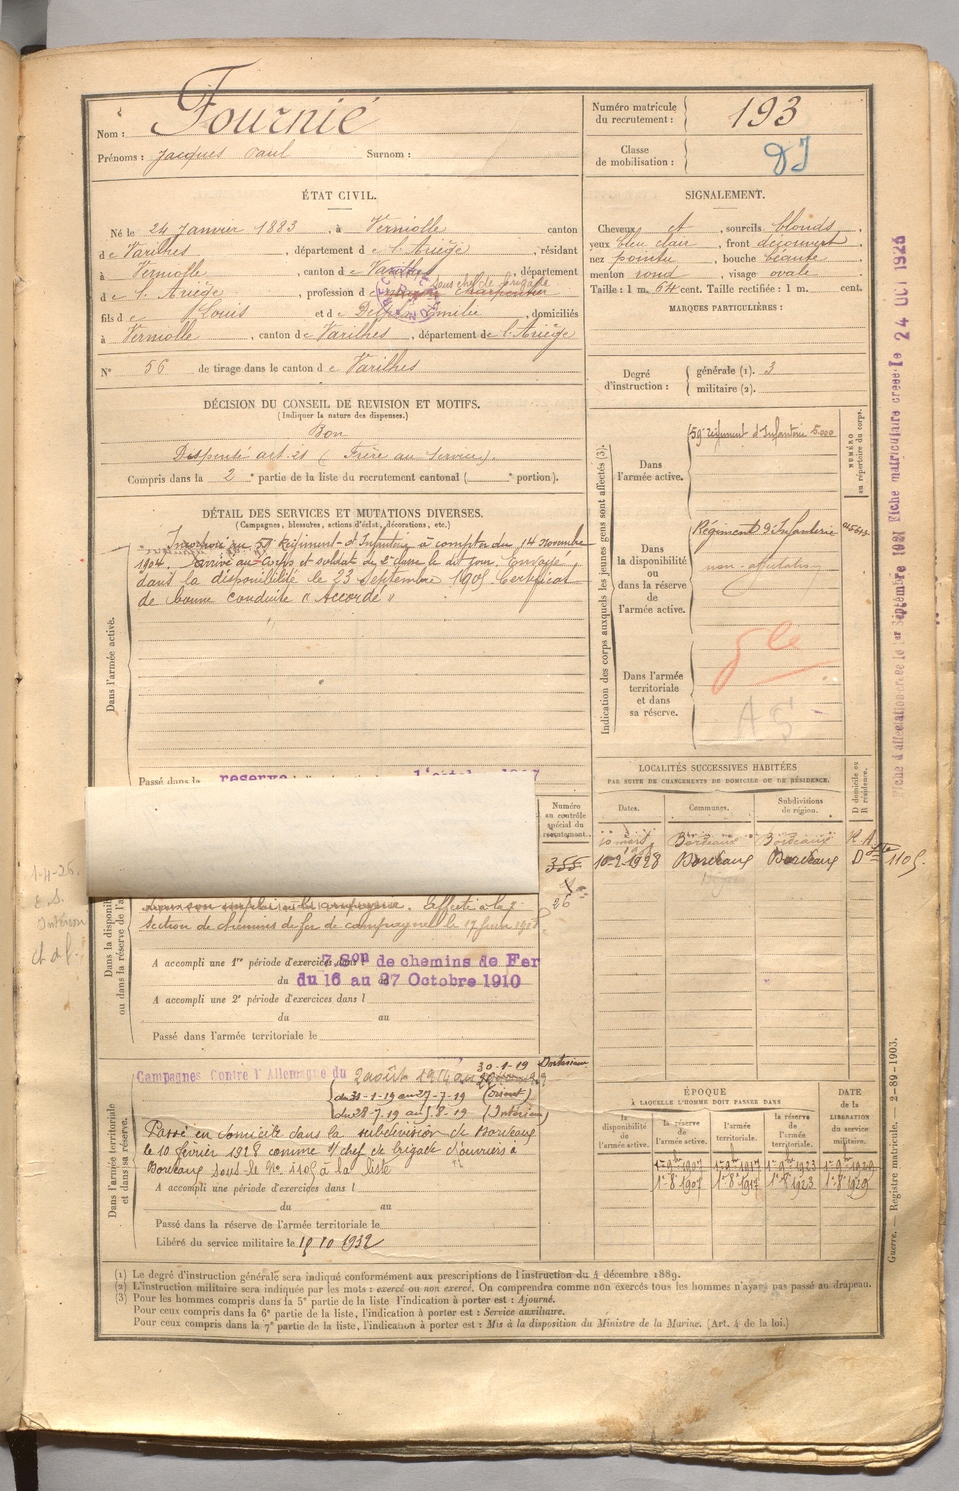 Nom : Fournié
Prénoms : Jacques Paul Surnom :
Numéro matricule du recrutement : 193
Classe de mobilisation :
ÉTAT CIVIL.
Né le 24 Janvier 1883, à Verniolle canton
de Varilhes, département de l'Ariège, résidant
à Verniolle, canton de Varilhes, département
de l'Ariège, profession de Charpentier
sous chef de brigade
fils de Louis et de Emilie, domiciliés
à Verniolle, canton de Varilhes, département de l'Ariège
N° 56 de tirage dans le canton de Varilhes
SIGNALEMENT.
Cheveux et, sourcils blonds,
yeux bleu clair, front découvert,
nez pointu, bouche,
menton rond, visage ovale.
Taille : 1 m. 64 cent. Taille rectifiée : 1 m. cent.
MARQUES PARTICULIÈRES :
Degré d'instruction : générale (1). 3
militaire (2).
DÉCISION DU CONSEIL DE REVISION ET MOTIFS.
(Indiquer la nature des dispenses.)
Bon
Dispensé art. 21 (Frère au Service).
Compris dans la 2e partie de la liste du recrutement cantonal (e portion).
DÉTAIL DES SERVICES ET MUTATIONS DIVERSES.
(Campagnes, blessures, actions d'éclat, décorations, etc.)
Dans l'armée active.
Incorporé au 59 Régiment d'Infanterie à compter du 14 Novembre
1904. Arrivé au Corps et soldat de 2e classe le dit jour. Envoyé
dans la disponibilité le 23 Septembre 1905 Certificat
de bonne conduite "Accordé"
Passé dans la reserve
Indication des corps auxquels les jeunes gens sont affectés (3).
NUMÉRO au répertoire du corps.
Dans l'armée active.
59e régiment d'Infanterie 5000
Dans la disponibilité ou dans la réserve de l'armée active.
Régiment d'Infanterie
non-affectation
Dans l'armée territoriale et dans sa réserve.
A S
LOCALITÉS SUCCESSIVES HABITÉES
PAR SUITE DE CHANGEMENTS DE DOMICILE OU DE RÉSIDENCE.
D domicile ou R résidence.
Dates. Communes. Subdivisions de région.
Bordeaux Bordeaux R
10-2-1928 Bordeaux Bordeaux D 1105
Numéro au contrôle spécial du recrutement.
355
26
Dans la disponibilité ou dans la réserve de l'a
Affecté à la
section de chemins de fer de campagne le 17 juin
A accompli une 1re période d'exercices dans l 7 Son de chemins de Fer
du 16 au 27 Octobre 1910
A accompli une 2e période d'exercices dans l
du au
Passé dans l'armée territoriale le
Dans l'armée territoriale et dans sa réserve.
Campagnes Contre l'Allemagne du 2 août 1914 au 30-1-19 Intérieur
du 31-1-19 au 27-7-19 (Orient)
du 28-7-19 au 5-8-19 (Intérieur)
Passé en domicile dans la subdivision de Bordeaux
le 10 février 1928 comme s/chef de brigade d'ouvriers à
Bordeaux sous le No 1105 à la liste
A accompli une période d'exercices dans l
du au
Passé dans la réserve de l'armée territoriale le
Libéré du service militaire le 15 10 1932
ÉPOQUE
À LAQUELLE L'HOMME DOIT PASSER DANS
DATE de la LIBÉRATION du service militaire.
la disponibilité de l'armée active. la réserve de l'armée active. l'armée territoriale. la réserve de l'armée territoriale.
1er 9bre 1907 1er 9bre 1917 1er 9bre 1923 1er 9bre 1929
1er 8bre 1907 1er 8bre 1917 1er 8bre 1923 1er 8bre 1929
(1) Le degré d'instruction générale sera indiqué conformément aux prescriptions de l'instruction du 4 décembre 1889.
(2) L'instruction militaire sera indiquée par les mots : exercé ou non exercé. On comprendra comme non exercés tous les hommes n'ayant pas passé au drapeau.
(3) Pour les hommes compris dans la 5e partie de la liste l'indication à porter est : Ajourné.
Pour ceux compris dans la 6e partie de la liste, l'indication à porter est : Service auxiliaire.
Pour ceux compris dans la 7e partie de la liste, l'indication à porter est : Mis à la disposition du Ministre de la Marine. (Art. 4 de la loi.)
Fiche d'affectation créée le 1er Septembre 1921 Fiche matriculaire créée le 24 OCT 1926
Guerre. — Registre matricule. — 2-89-1903.